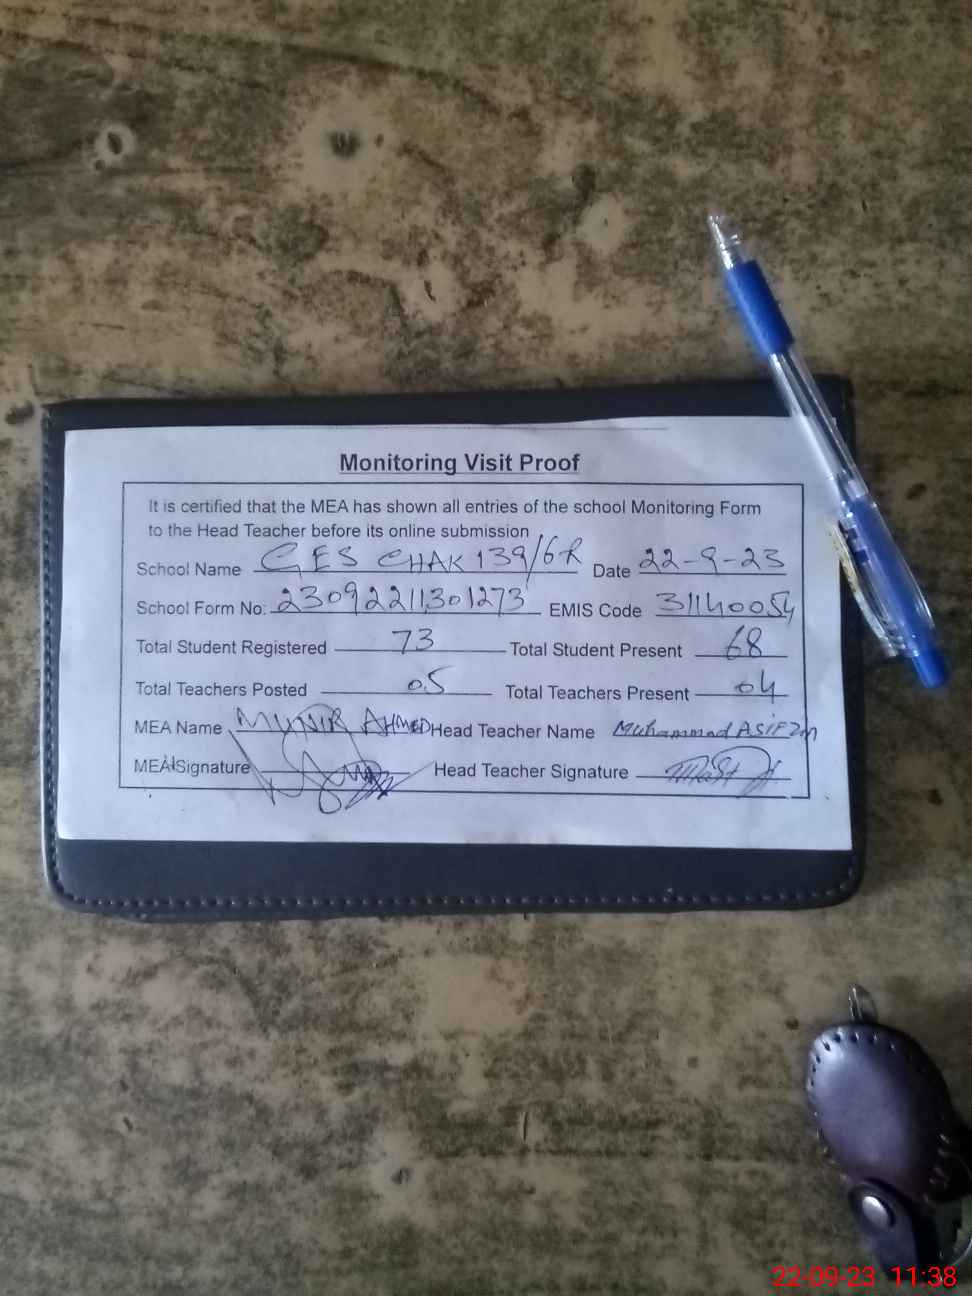 Monitoring Visit Proof
It is certified that the MEA has shown all entries of the school Monitoring Form
to the Head Teacher before its online submission
School Name GES CHAK 139/6-R Date 22-9-23
School Form No: 23092211301273 EMIS Code 31140054
Total Student Registered 73 Total Student Present 68
Total Teachers Posted 05 Total Teachers Present 04
MEA Name MUNIR AHMED Head Teacher Name Muhammad ASIF
MEA Signature Head Teacher Signature
22-09-23 11:38